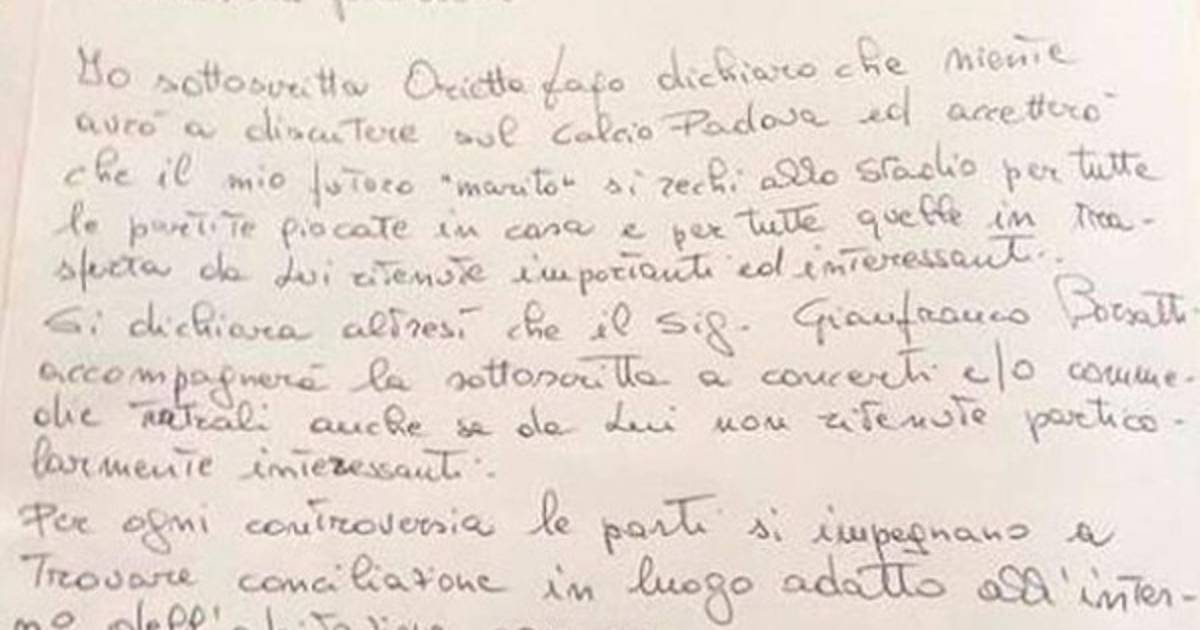 Io sottoscritta Orietta fafo dichiaro che niente
avrò a discutere sul Calcio Padova ed accetterò
che il mio futuro "marito" si rechi allo stadio per tutte
le partite giocate in casa e per tutte quelle in tra-
sferta da Lui ritenute importanti ed interessanti.
Si dichiara altresì che il Sig. Gianfranco Borsatti
accompagnerà la sottoscritta a concerti e/o comme-
die teatrali anche se da Lui non ritenute partico-
larmente interessanti.
Per ogni controversia le parti si impegnano a
Trovare conciliazione in luogo adatto all'inter-
no dell'